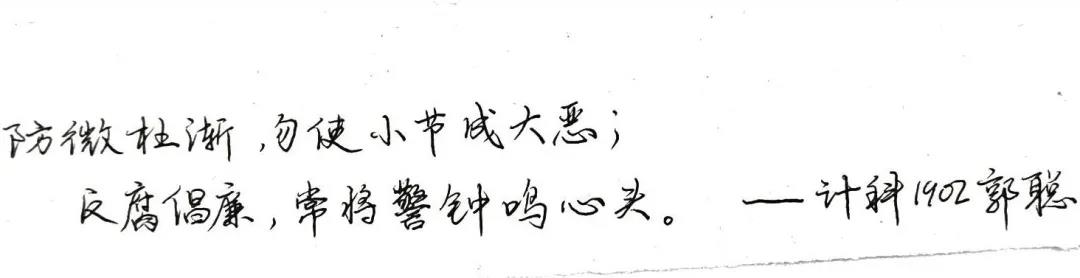 防微杜渐,勿使小节成大恶;
反腐倡廉,常将警钟鸣心头。 ——计科1902郭聪